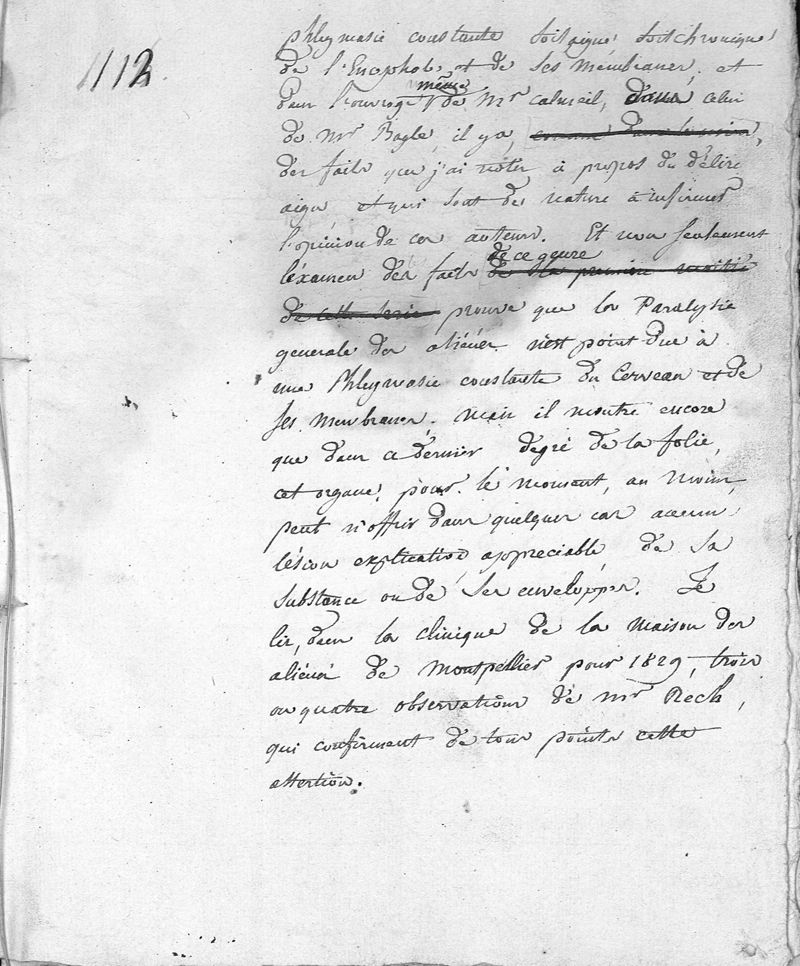 1112
phlegmasie constante soit aigue, soit chronique,
de l'Encephale et de ses membranes, et
même
dans l'ouvrage de Mr calmeil, dans celui
de Mr Bayle, il y a,
des faits que j'ai notés à propos du délire
aigu et qui sont de nature à infirmer
l'opinion de ces auteurs. Et non seulement
de ce genre
l'éxamen des faits de la premiere moitié
de cette serie prouve que la Paralysie
generale des aliénés n'est point due à
une Phlegmasie constante du Cerveau et de
ses membranes, mais il montre encore
que dans ce dernier degré de la folie,
cet organe, pour le moment, au moins,
peut n'offrir dans quelques cas aucune
lésion explicative, appreciable, de sa
substance ou de ses enveloppes. Je
lis, dans la clinique de la maison des
aliénés de Montpellier pour 1829, trois
ou quatre observations de Mr Rech,
qui confirment de tous points cette
assertion.